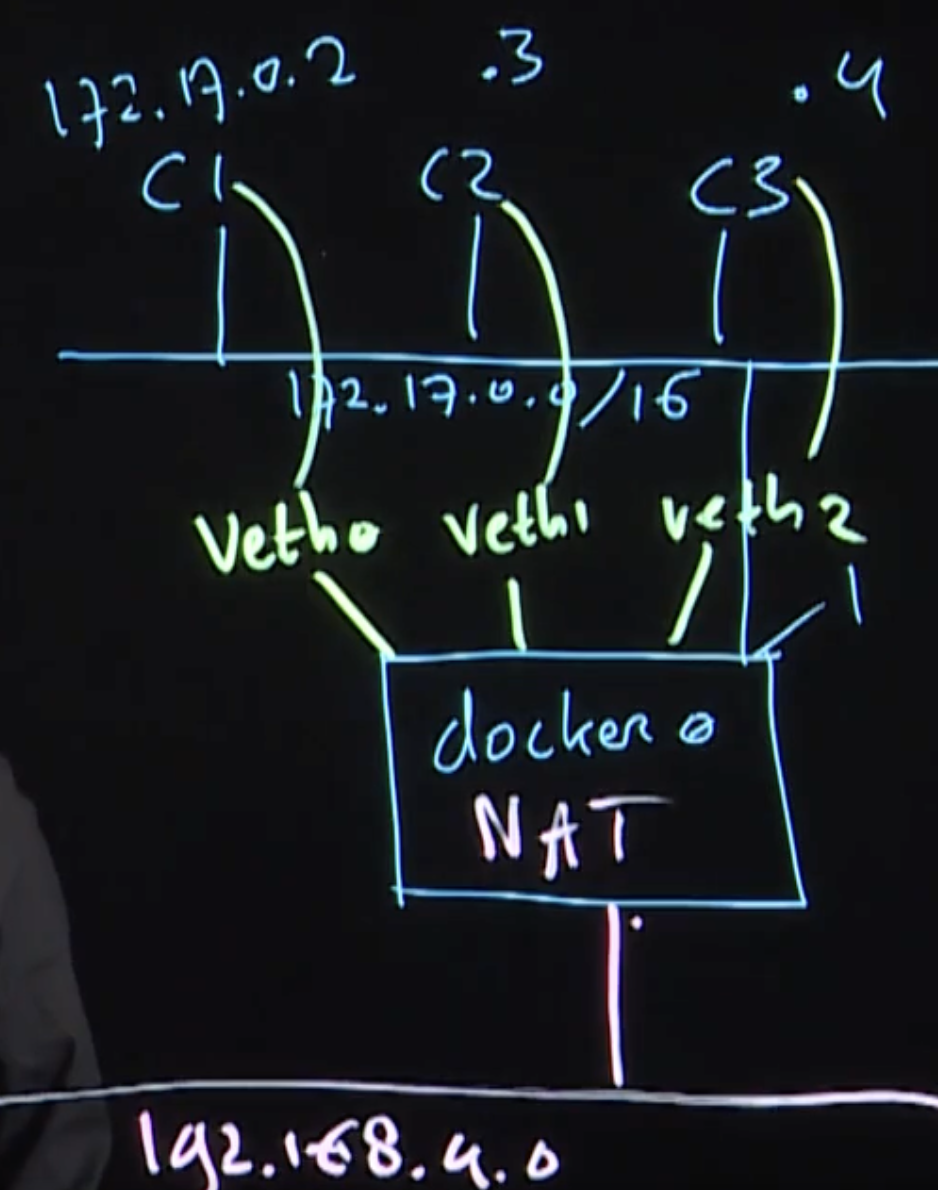 172.17.0.2 .3 .4
C1 C2 C3
172.17.0.0/16
Veth0 Veth1 veth2
1
docker0
NAT
192.168.4.0